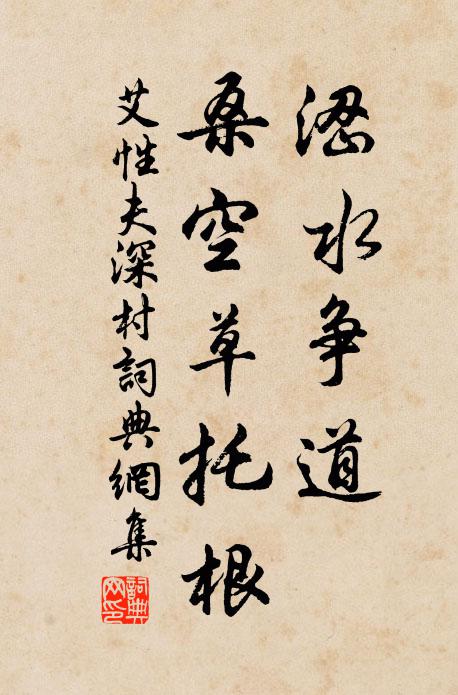 澀水争道
桑空草托根
艾性夫深村詞典網集
詞典
网印